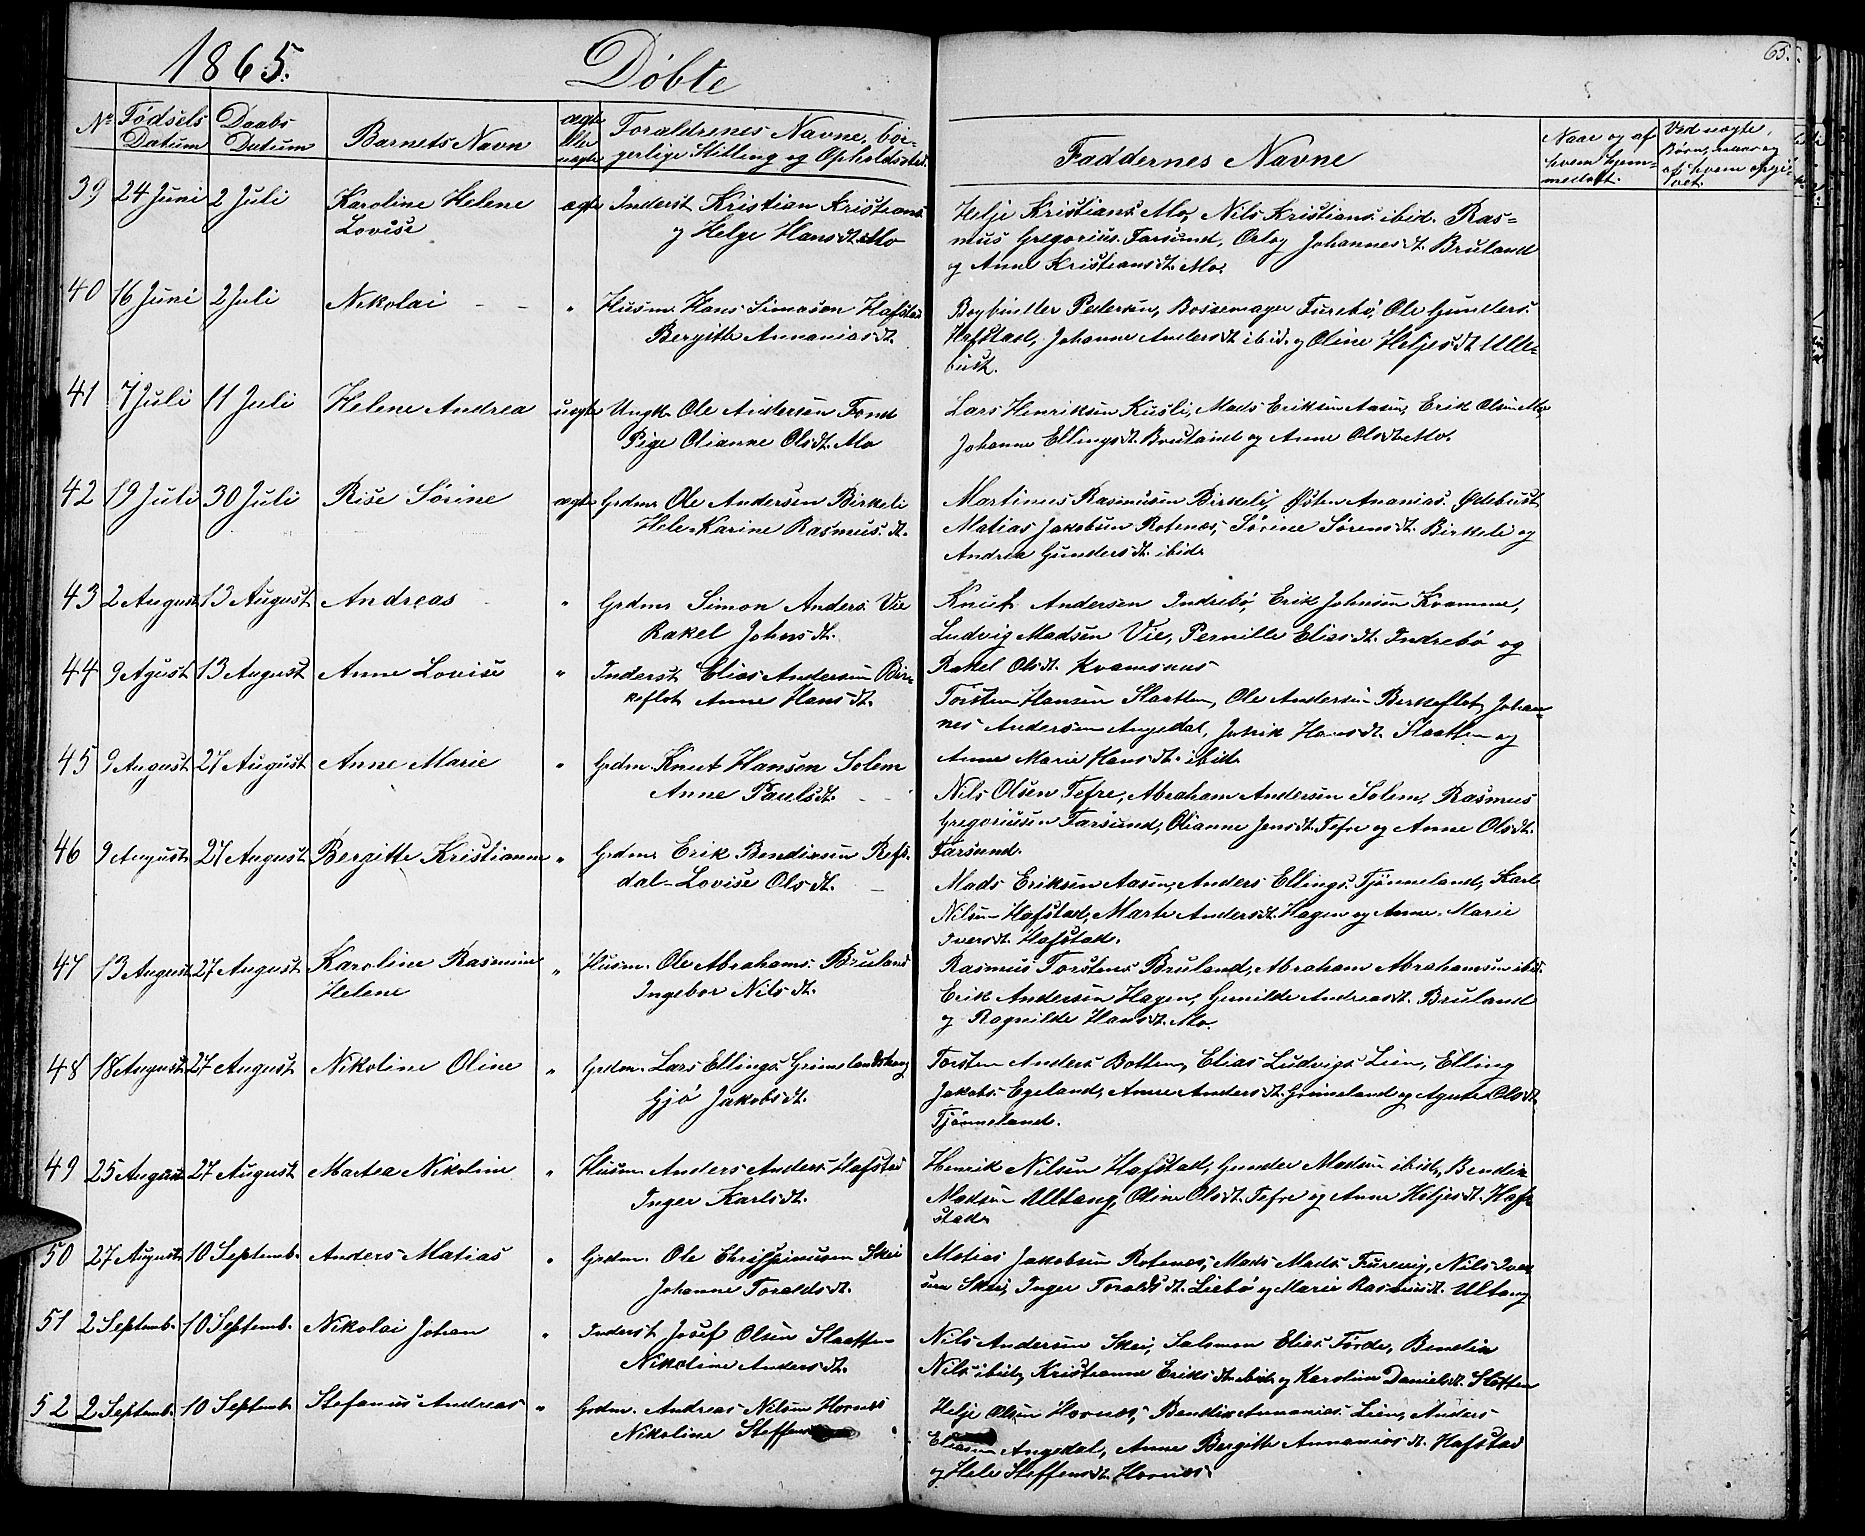 1865.
Døbte
65.
No
Fødsels Datum
Daabs Datum
Barnets Navn
ægte eller uægte
Forældrenes Navne, bør-
gerlige Stilling og Opholdssted.
Faddernes Navne
Naar og af
hvem hjem-
medøbt.
Ved uægte
Børn, naar og
af hvem opgi-
vet.
39 24 Juni 2 Juli Karoline Helene ægte Inderst Kristian Kristians.
Lovise og Helge Hansdt. Mo
Helje Kristians. Mo, Nils Kristians. ibid. Ras-
mus Gregorius. Farsund, Johannesdt. Bruland
og Anne Kristiansdt. Mo.
40 16 Juni 2 Juli Nikolai - - " Husm. Hans Simonsen Hafstad
Bergitte Annaniasdt.
Bogbinder Pedersen, Bøssemager Furebø, Ole Gunders.
Hafstad, Johanne Andersdt. ibid. og Oline Heljesdt. Ulle-
bust.
41 7 Juli 11 Juli Helene Andrea uægte Ungk. Ole Andersen
Pige Olianne Olsdt. Mo
Lars Henriksen Kusli, Mads Eriksen Aasen, Erik Olsen Mo,
Johanne Ellingsdt. Bruland og Anne Olsdt. Mo.
42 19 Juli 30 Juli Rise Sørine ægte Grdm. Ole Andersen Birkeli
Hele Karine Rasmus.dt.
Martinus Rasmusen Birkeli, Østen Ananias. Ødebust
Matias Jakobsen Rotenæs, Sørine Sørensdt. Birkeli og
Andrea Gundersdt. ibid.
43 2 August 13 August Andreas " Grdm. Simon Anders. Vie
Rakel Johnsdt.
Knut Andersen Indrebø, Erik Johnsen Kvamme,
Ludvig Madsen Vie, Pernille Eliasdt. Indrebø og
Rakel Olsdt. Kvamsnæs
44 9 Agust 13 August Anne Lovise " Inderst Elias Andersen Bir-
keflot Anne Hansdt.
Torsten Hansen Slaatten, Ole Andersen Berkeflot, Johan-
nes Andersen Angedal, Hansdt. Slaatten og
Anne Marie Hansdt. ibid.
45 9 August 27 August Anne Marie " Grdm. Knut Hansen Solem
Anne Paulsdt. - -
Nils Olsen Tefre, Abraham Andersen Solem, Rasmus
Gregoriusen Farsund, Olianne Jensdt. Tefre og Anne Olsdt.
Farsund.
46 9 August 27 August Bergitte Kristianne " Grdm. Erik Bendixsen Refs-
dal - Lovise Olsdt. -
Mads Eriksen Aasen, Anders Ellings. Tjønneland, Karl
Nilsen Hafstad, Marte Andersdt. Hagen og Anne Marie
Iversdt. Hafstad.
47 13 August 27 August Karoline Rasmine " Husm. Ole Abrahams. Bruland
Helene Ingebor Nilsdt.
Rasmus Torstens. Bruland, Abraham Abrahamsen ibid.
Erik Andersen Hagen, Gunilde Andreasdt. Bruland
og Ragnilde Hansdt. Mo.
48 18 August 27 August Nikoline Oline " Grdm. Lars Ellings. Grimelandshaug
Gjø Jakobsdt.
Torsten Anders. Botten, Elias Ludvigs. Lien, Elling
Jakobs. Egeland, Anne Andersdt. Grimeland og Agnete Olsdt.
Tjønneland.
49 25 August 27 August Martea Nikoline " Husm. Anders Anders. Hafstad
Inger Karlsdt.
Henrik Nilsen Hafstad, Gunder Madsen ibid., Bendix
Madsen Ultang, Oline Olsdt. Tefre og Anne Heljesdt. Haf-
stad.
50 27 August 10 Septemb. Anders Matias " Grdm. Ole Skei
Johanne Toraldsdt.
Matias Jakobsen Rotenæs, Mads Mads. Furevig, Nils Iver-
sen Skei, Inger Toraldsdt. Liebø og Marie Rasmusdt. Ultang
51 2 Septemb. 10 Septemb. Nikolai Johan " Inderst Josef Olsen Slaatten
Nikoline Andersdt.
Nils Andersen Skei, Salomon Elias. Førde, Bendix
Nils. ibid., Kristianne Eriksdt. ibid. og Karoline Danielsdt. Slotten
52 2 Septemb. 10 Septemb. Stefanus Andreas " Grdm. Andreas Nilsen Hornes
Nikoline Steffens
Helje Olsen Hornæs, Bendix Annanias. Lien, Anders
Eliasen Angedal, Anne Bergitte Annaniasdt. Hafstad
og Hele Steffensdt. Hornæs